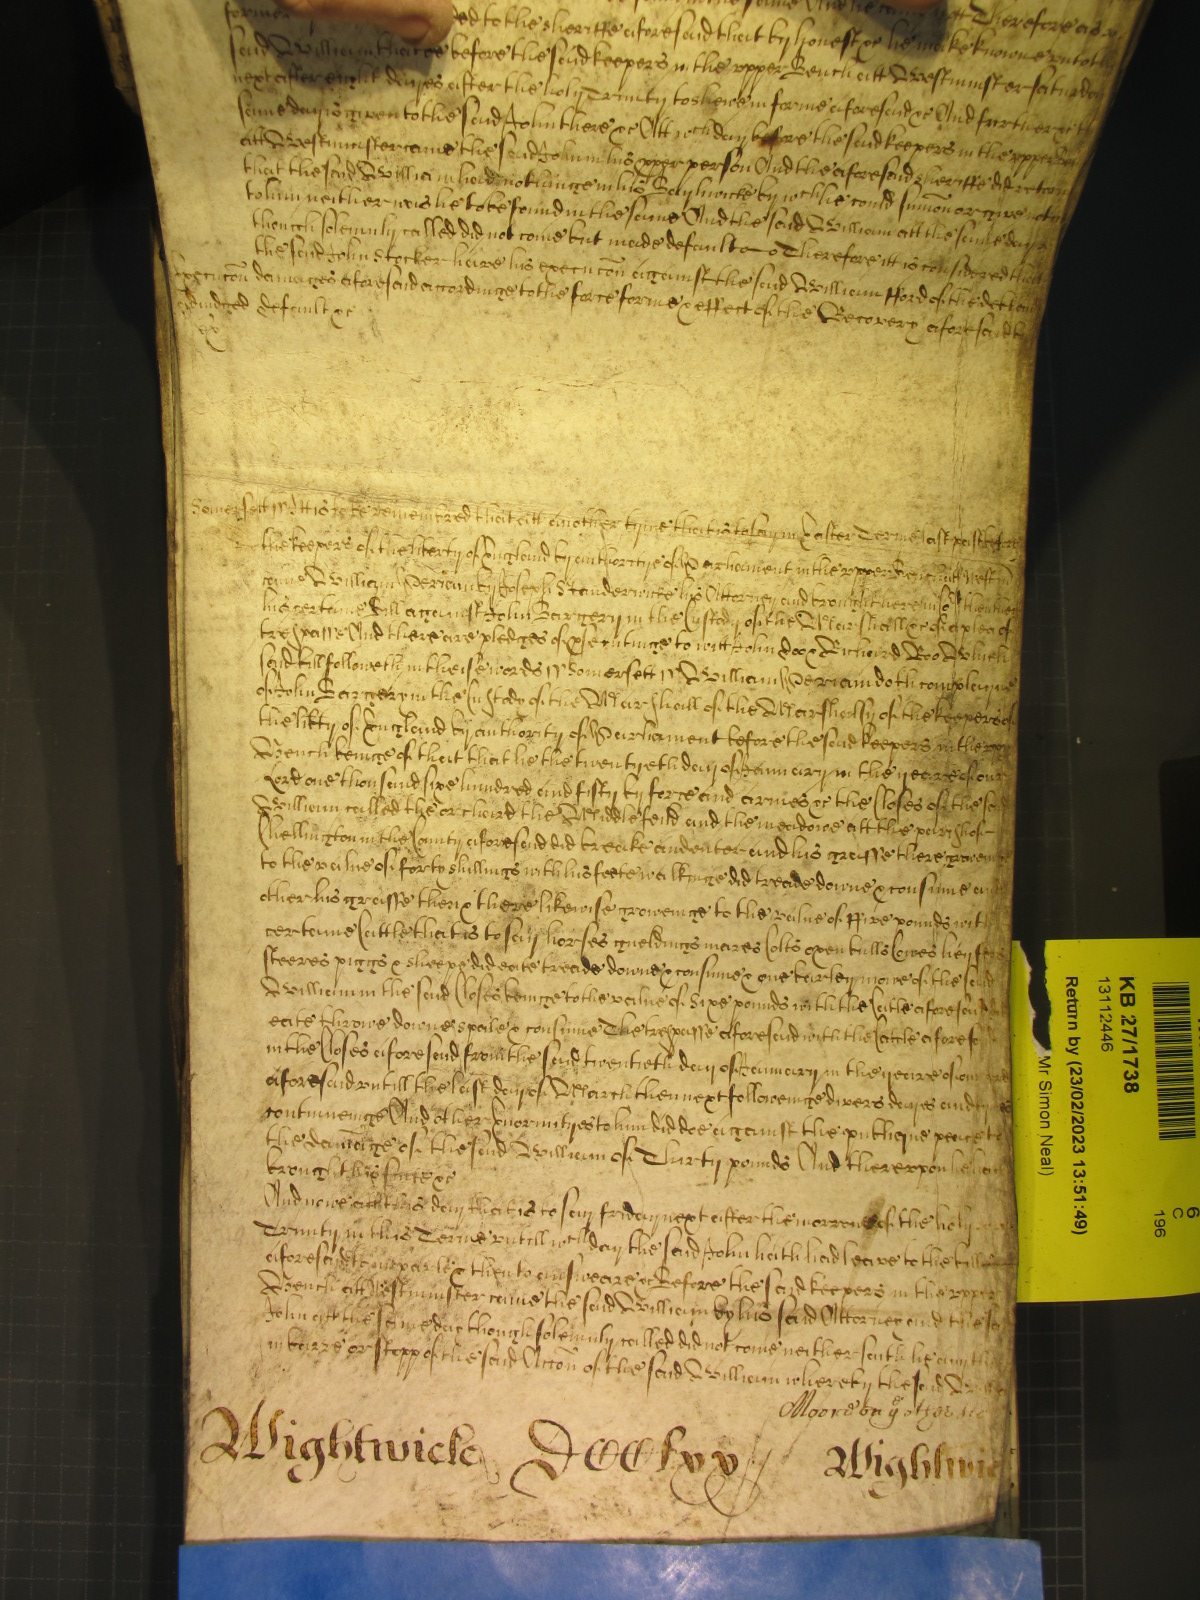 former ded to the sheriffe aforesaid that by honest &c he make knowne unto the
said William that he be before the said keepers in the upper Bench att Westminster saturday
next after eight dayes after the holy Trinity to shewe in forme aforesaid &c And further &c the
same day is given to the said John there &c Att wch day before the said keepers in the upper
att Westminster came the said John in his pper person And the aforesaid sheriffe did retorne
that the said William had nothinge in his Baylywicke by wch he could sumon or give notice
to him neither was he to be found in the same And the said William att the same day
though solemnly called did not come but made default Therefore itt is considered that
the said John Stocker have his execucon against the said William fford of the debt and
Execucon damages aforesaid accordinge to the force forme & effect of the Recovery aforesaid by
adiudged default &c
Somersett ss Itt is to be remembred that att another tyme that is to say in Easter Terme last past before
the keepers of the liberty of England by authoritye of Parliament in the upper Bench att Westm
came William Perriam by Joseph Standerwicke his Attorney and brought here into then there
his certaine Bill against John Bargery in the Custody of the Marshall &c of a plea of
trespasse And there are pledges of prosecutinge to witt John Doo & Richard Roo Which
said bill followeth in theise words ss Somersett ss William Perriam doth complayne
of John Bargery in the Custody of the Marshall of the Marshalsy of the keepers of
the libty of England by authority of Parliament before the said keepers in the upp
Bench beinge of that that he the twentyeth day of January in the yeare of our
Lord one thousand sixe hundred and fifty by force and armes &c the Closes of the said
William called the orchard the Middlefeild and the meadowe att the parish of
Chellington in the County aforesaid did breake and enter and his grasse there groweinge
to the value of forty shillings with his feete walkinge did treade downe & consume and
other his grasse then & there likewise groweinge to the value of ffive pounds with
certaine Cattle that is to say horses gueldings mares Colts oxen bulls Cowes heyfers
steeres piggs & sheepe did eate treade downe & consume & one barley mowe of the said
William in the said Closes beinge to the value of sixe pounds with the Catle aforesaid did
eate throwe downe spoile & consume The trespasse aforesaid with the Cattle aforesd
in the Closes aforesaid from the said twentieth day of January in the yeare of our
aforesaid untill the last day of March then next followeinge divers dayes and tymes
continueinge And other Enormityes to him did doe against the publique peace to
the damage of the said William of Thirty pounds And thereupon he hath
brought his suite &c
And nowe att this day that is to say friday next after the morrowe of the holy
Trinity in this Terme untill wch day the said John hath had leave to the bill
aforesaid to imparle & then to answeare &c Before the said keepers in the upper
Bench att Westminster came the said William by his said Attorney and the said
John att the same day though solemnly called did not come neither saith he any thinge
in barre or stopp of the said Accon of the said William whereby the said
Wightwick DCClxx Wightwic
KB 27/1738
13112446
Return by (23/02/2023 13:51:49)
Mr Simon Neal)
6
C
196